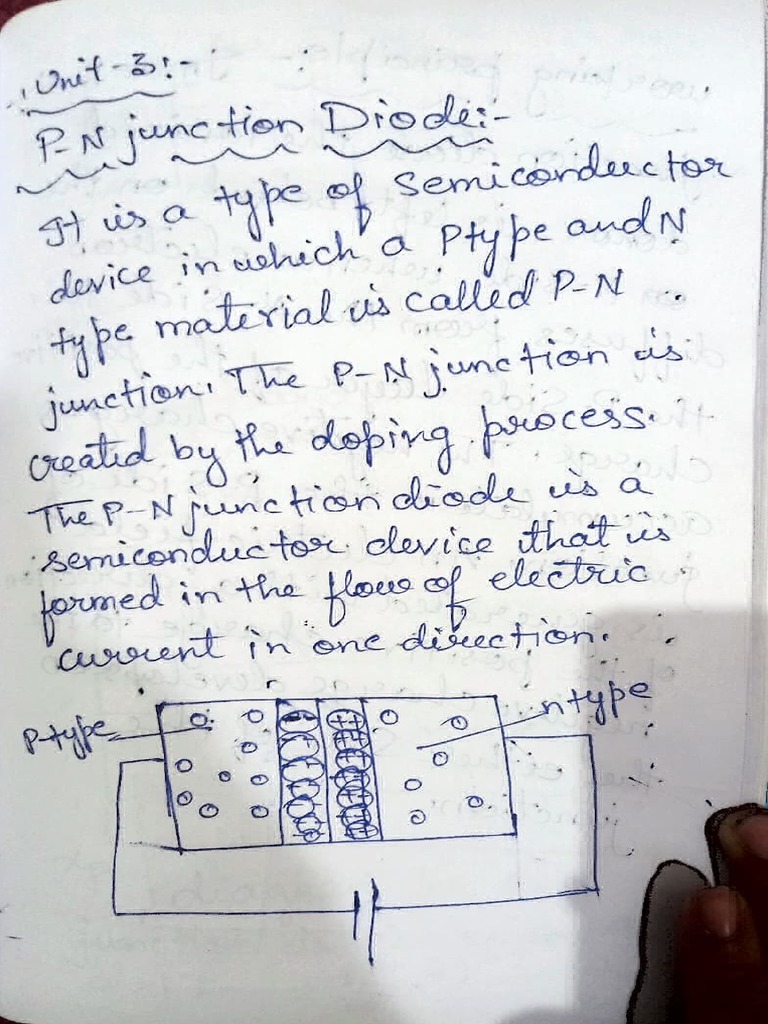 Unit-3:-
P-N junction Diode:-
It is a type of semiconductor
device in which a Ptype and N
type material is called P-N
junction. The P-N junction is
created by the doping process.
The P-N junction diode is a
semiconductor device that is
formed in the flow of electric
current in one direction.
P-type
ntype